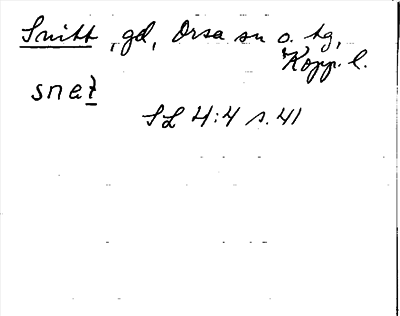 Snitt, gd, Orsa sn o. tg,
Kopp. l.
snet
SL 4:4 s. 41